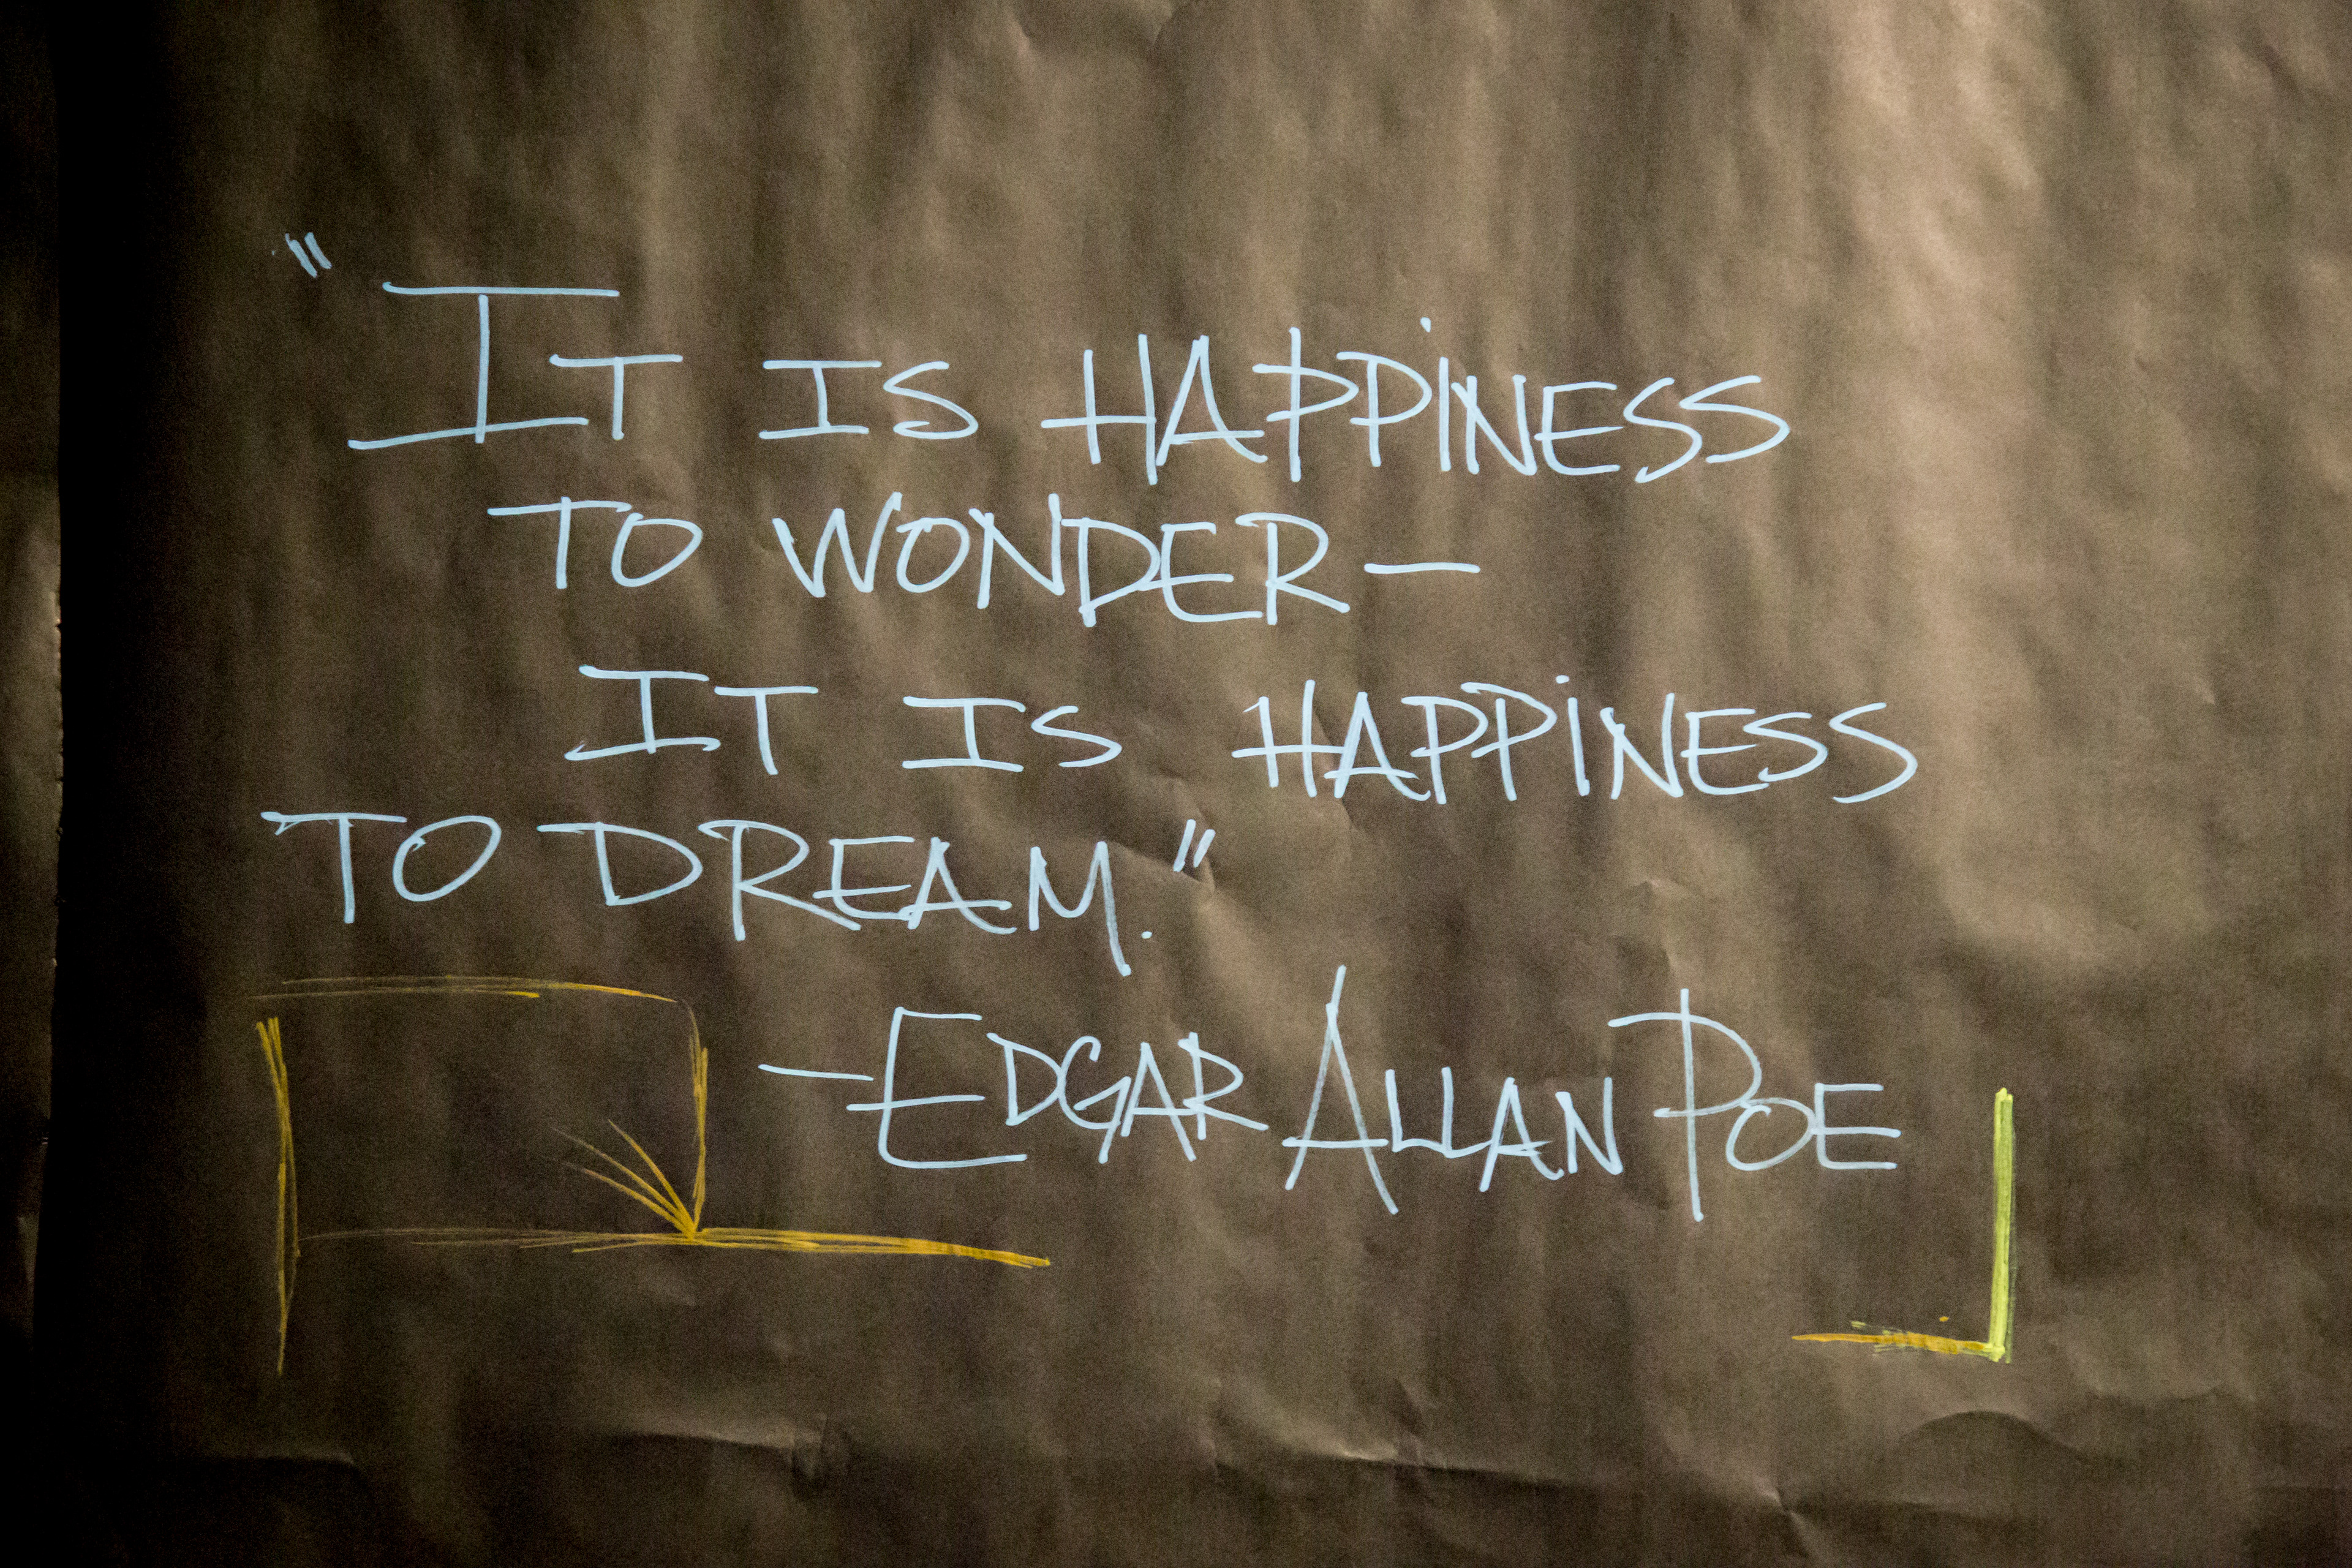 "It is happiness
to wonder—
it is happiness
to dream."
—Edgar Allan Poe